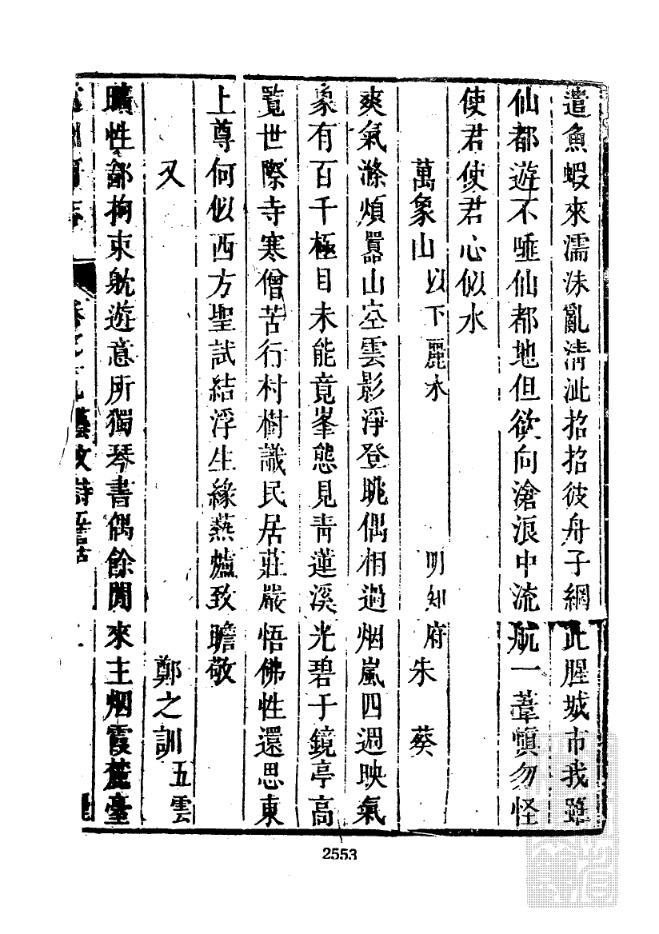 遣魚蝦來濡沫亂清沚招招彼舟子網此腥城市我雖
仙都遊不唾仙都地但欲向滄浪中流航一葦愼勿怪
使君使君心似水
萬象山以下麗水 明知府朱葵
爽氣滌煩囂山空雲影淨登眺偶相過烟嵐四週映氣
象有百千極目未能竟峯態見靑蓮溪光碧于鏡亭高
覧世際寺寒僧苦行村樹識民居莊嚴悟佛性還思東
上尊何似西方聖試結浮生緣燕爐致瞻敬
又 鄭之訓五雲
曠性鄙拘束躭遊意所獨琴書偶餘閒來主烟霞麓臺
卷之 藝文詩
2553